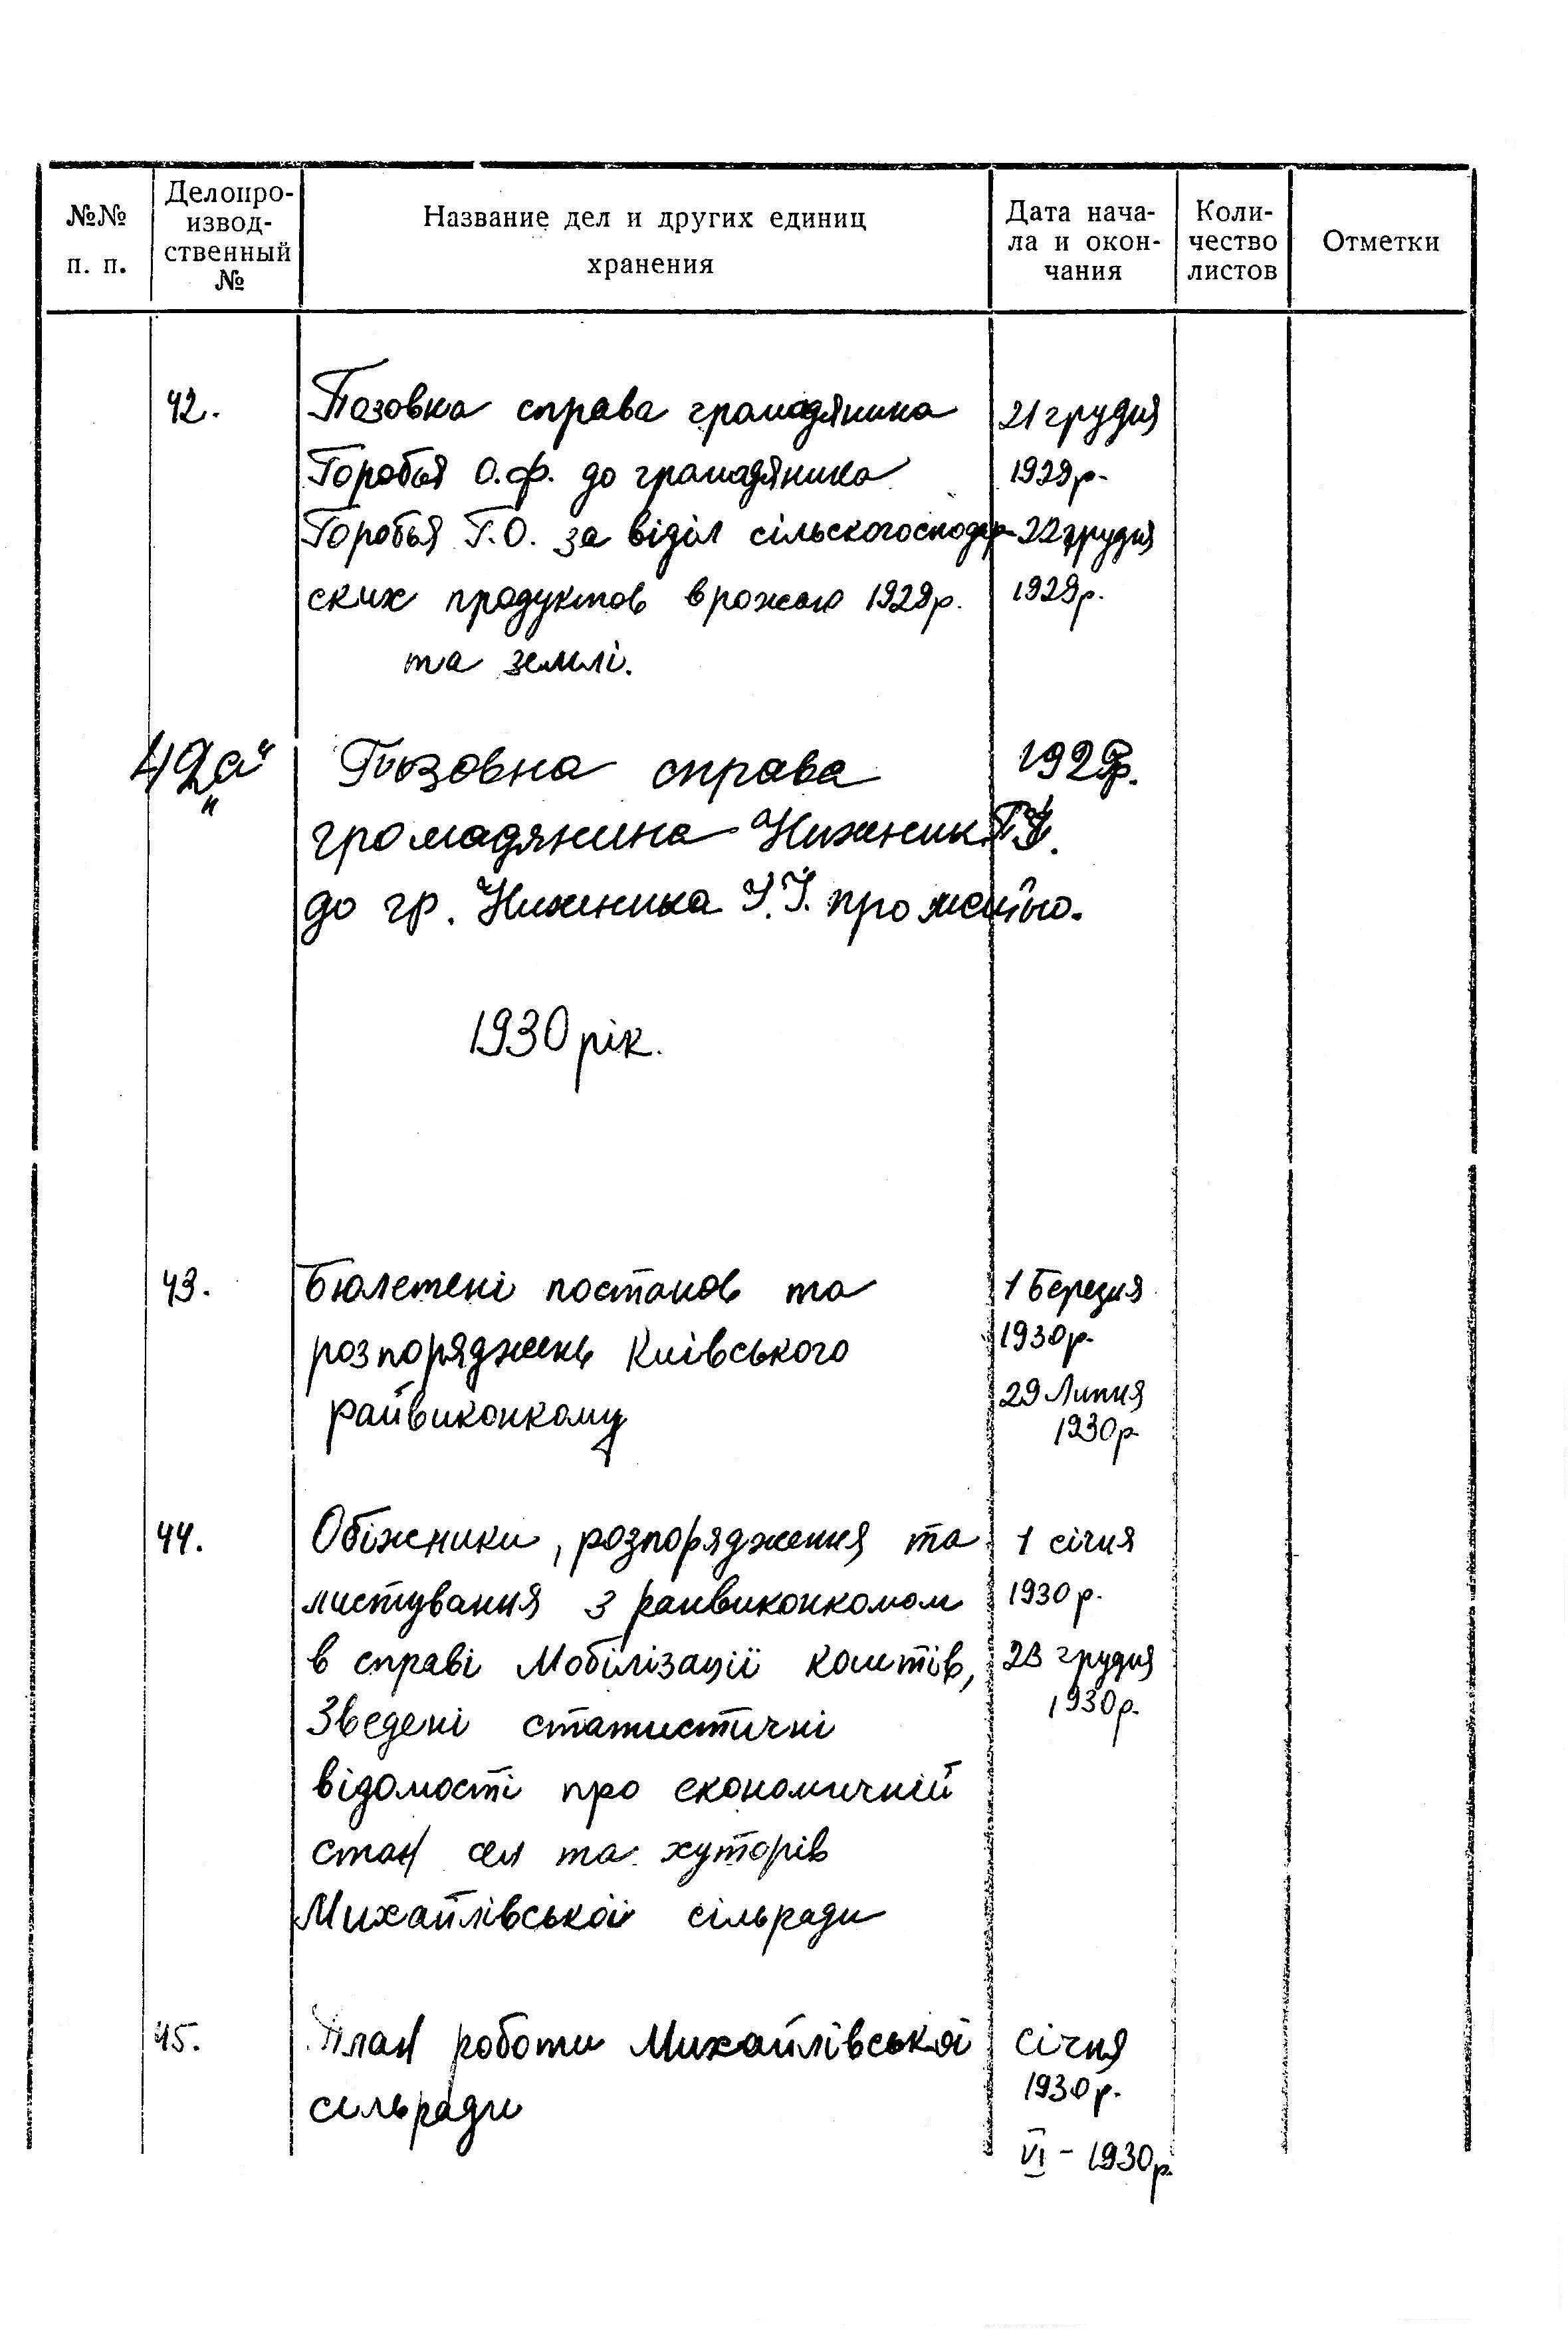 №№ п. п.
Делопро-
извод-
ственный
№
Название дел и других единиц
хранения
Дата нача-
ла и окон-
чания
Коли-
чество
листов
Отметки
42. Позовна справа громадянина 21 грудня
Горобья О.Ф. до громадянина 1929р.
Горобья Г.О. за віділ сільскогосподар- 22 грудня
ских продуктов врожаю 1929р. 1929р.
та землі.
42"а" Позовна справа 1929р.
громадянина Нижник
до гр. Нижника І.І. про майно.
1930 рік.
43. Бюлетені постанов та 1 Березня
розпоряджень Київського 1930р.
райвиконкому 29 Липня
1930р
44. Обіжники, розпорядження та 1 січня
листування з райвиконкомом 1930р.
в справі Мобілізації коштів, 23 грудня
Зведені статистичні 1930р.
відомості про економичний
стан сел та хуторів
Михайлівської сільради
45. План роботи Михайлівської січня
сільради 1930р.
VI - 1930р.